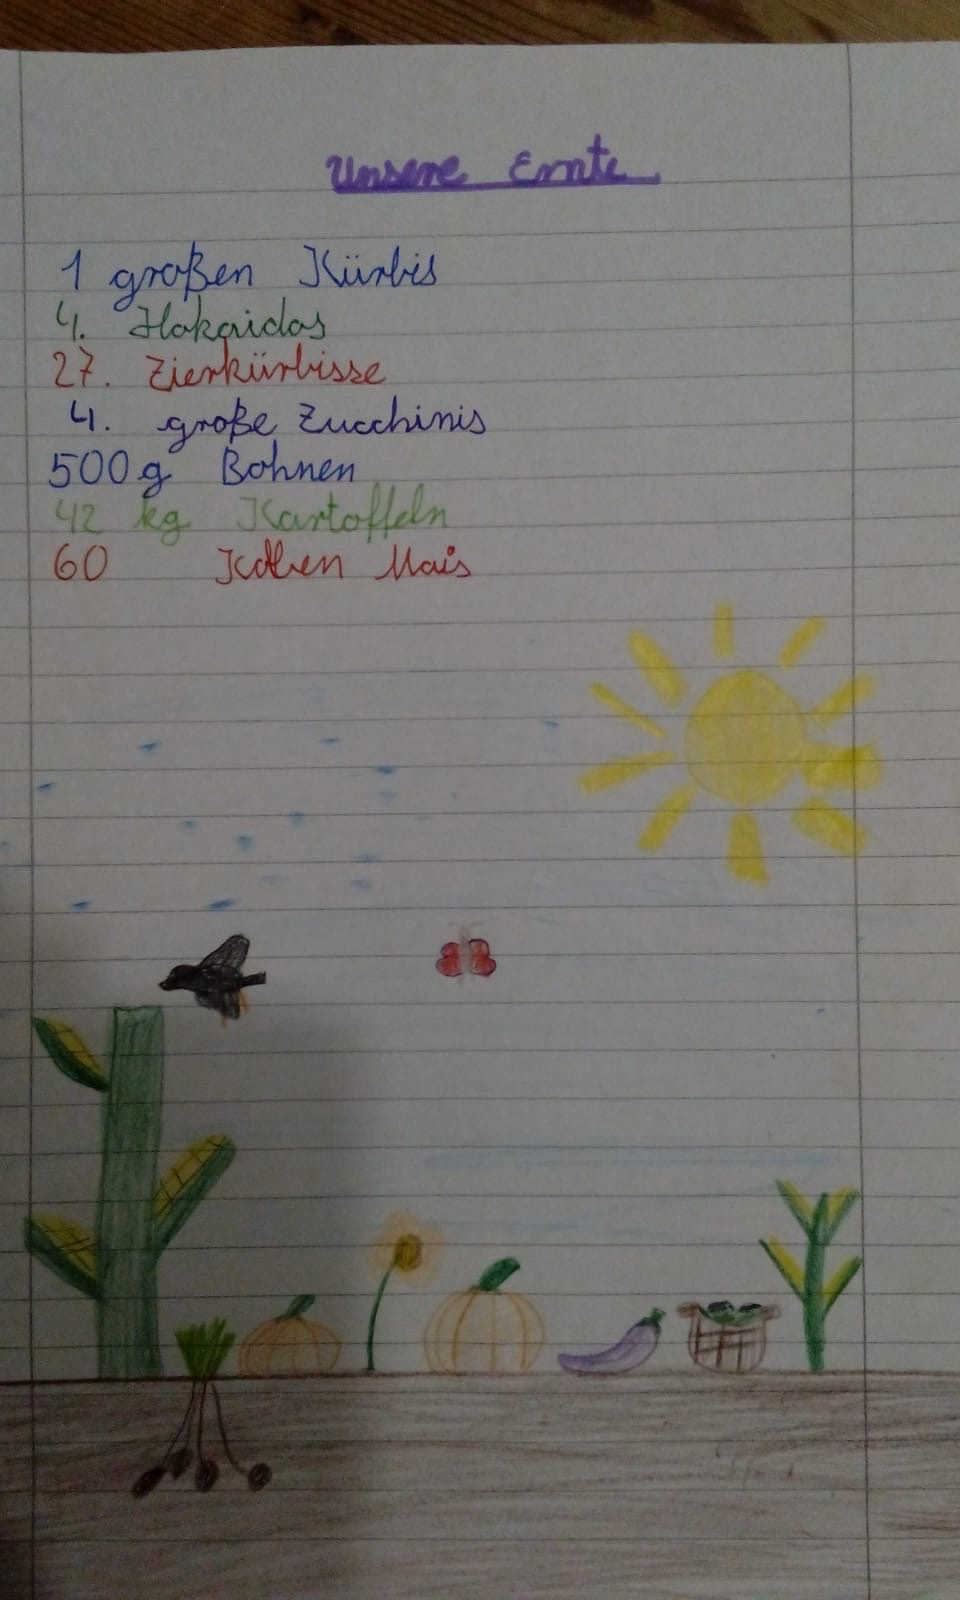 Unsere Ernte
1 großen Kürbis
4. Hokaidos
27. Zierkürbisse
4. große Zucchinis
500g Bohnen
42 kg Kartoffeln
60 Kolben Mais